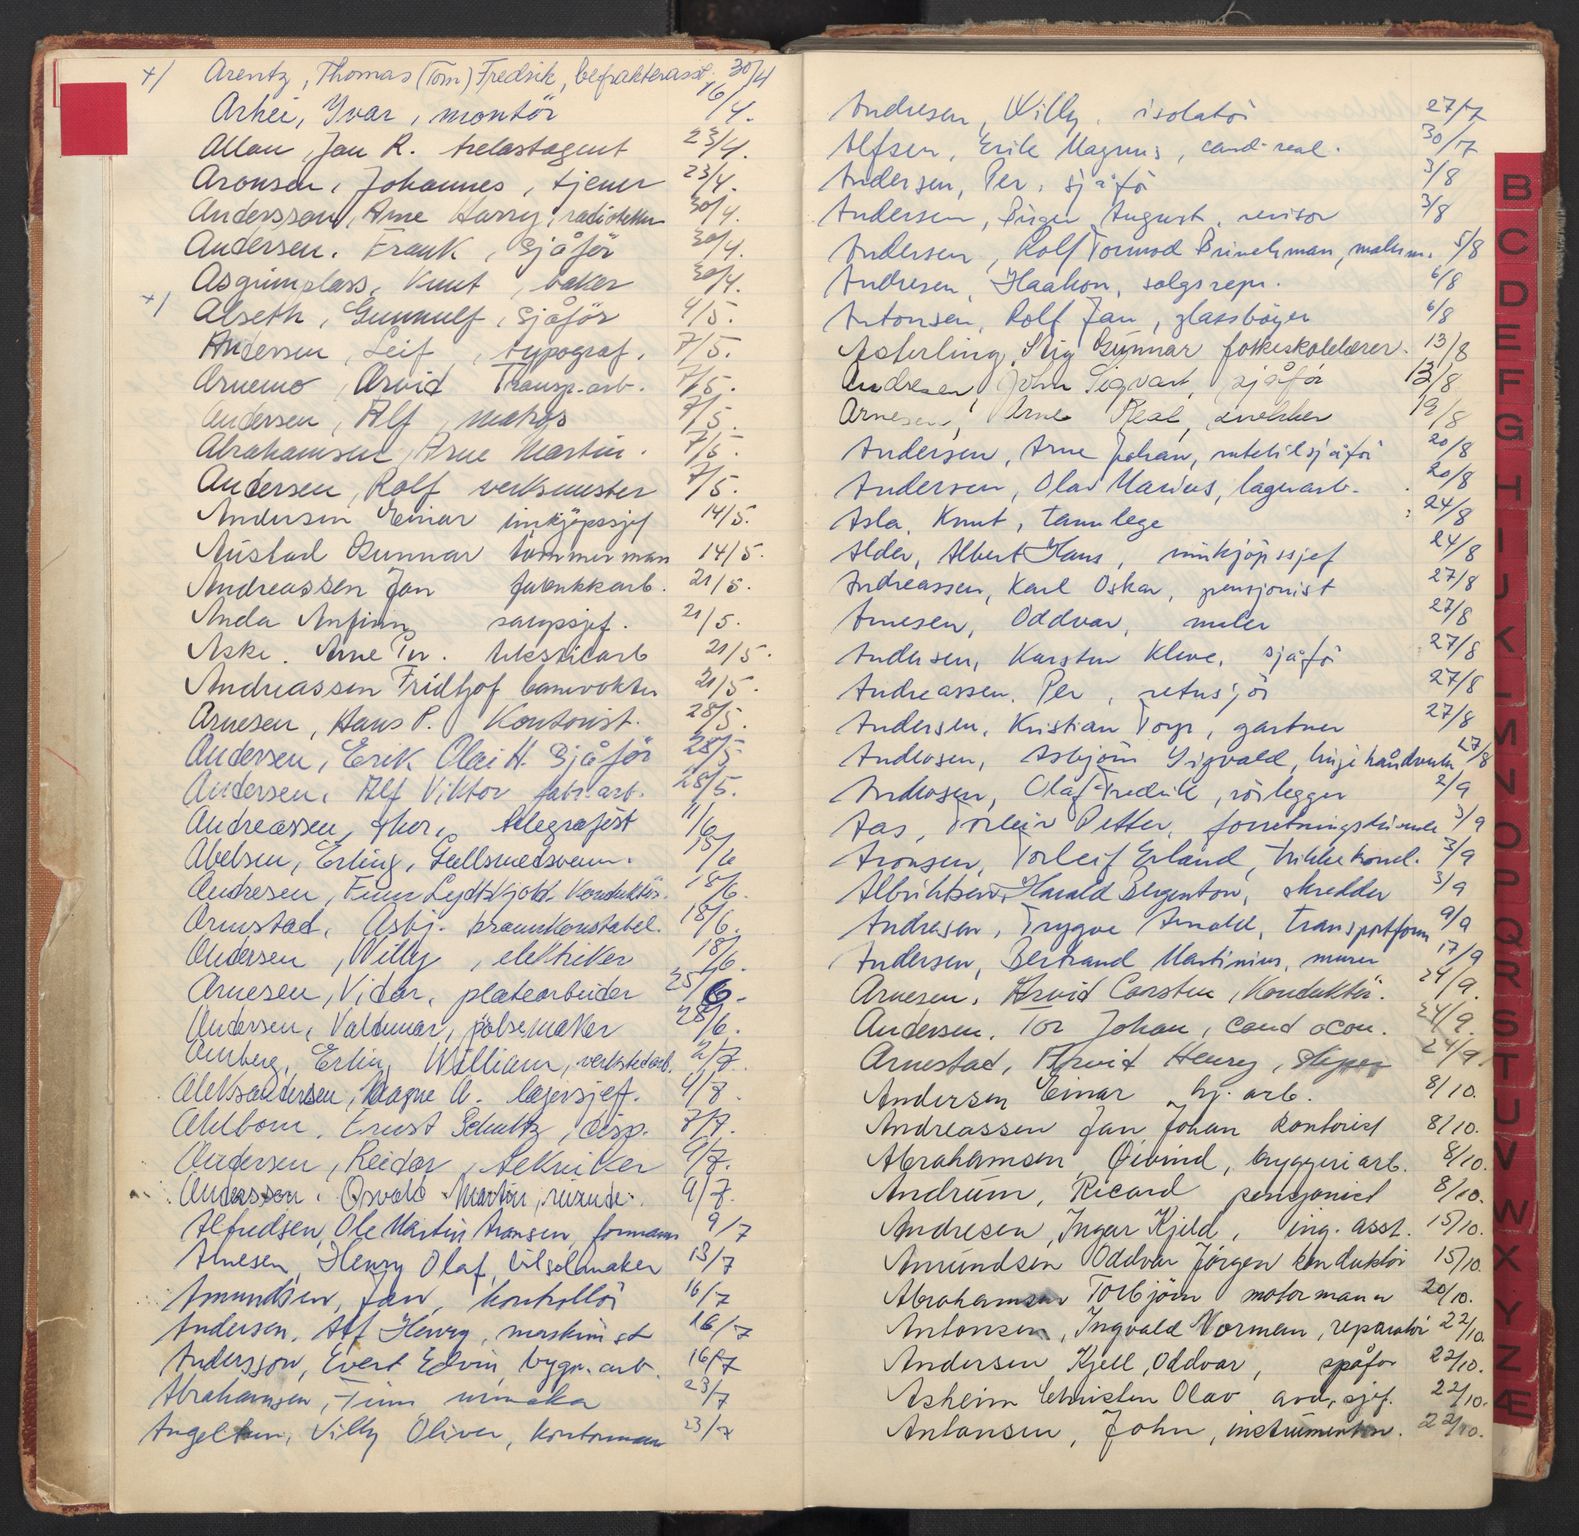 +/ Arentz, Thomas (Tom) Fredrik, befrakterasst. 30/4
Arhei, Yvar, montör 16/4.
Allan, Jan R. trelastagent 23/4.
Aronsen, Johannes, tjener 23/4.
Andersson, Arne Harry, radiotekn 30/4.
Andersen, Frank, Sjåför 30/4.
Asgrimplass, Knut, baker 30/4.
+/ Alseth, Gunnulf, Sjåför 4/5.
Andersen, Leif, typograf. 7/5.
Arnemo, Arvid Transp.arb. 7/5.
Andersen, Alf, matros 7/5.
Abrahamsen, Arne Martin. 7/5.
Andersen, Rolf verksmester 7/5.
Andersen Einar innkjöpssjef 14/5.
Austad Gunnar tömmermann 14/5.
Andreassen Jan fabrikkarb. 21/5.
Anda Anfinn salgssjef. 21/5.
Aske. Arne Pr. tekstilarb 21/5.
Andreassen Fridtjof banevokter 21/5.
Arnesen, Hans P. Kontorist. 28/5.
Andersen, Erik Olai H. Sjåför 28/5
Andersen, Alf Viktor fabr.arb. 28/5.
Andreassen, Thor, telegrafist 11/6
Abelsen, Erling, Gullsmedsvenn. 18/6
Andresen, Finn Lydtskjold Konduktör. 18/6.
Arnstad, Asbj. brannkonstabel. 18/6.
Andersen, Willy, elektriker 18/6.
Arnesen, Vidar, platearbeider 25/6-
Andersen, Valdemar, pölsemaker 28/6.
Amberg, Erling William, verkstedarb. 2/7.
Aleksandersen, Magne A. lagersjef. 4/7.
Ahlbom, Ernst Schultz, disp. 7/7.
Andersen, Reidar, tekniker 9/7.
Andersen, Osvald Martin, 9/7.
Alfredsen, Ole Martin Aronsen, formann 9/7
Arnesen, Henry Olaf, bilselmaker 13/7
Amundsen, Jan, kontrollör 16/7
Andersen, Alf Henry, maskinist 16/7
Andersson, Evert Edvin, bygn.arb. 16/7
Abrahamsen, Finn, urmaker 23/7
Angeltun, Villy Oliver, kontormann 23/7
Andresen, Willy, isolatör 27/7
Alfsen, Erik Magnus, cand-real. 30/7
Andersen, Per, sjåför 3/8
Andersen, Birger August, revisor 3/8
Andersen, Rolf Tormod Brinchman, malerm. 5/8
Andresen, Haakon, salgsrepr. 6/8
Antonsen, Rolf Jan, glassböyer 6/8
Asterling, Stig Gunnar folkeskolelærer. 13/8
Andresen, John Sigvart, sjåför 13/8
Arnesen, Arne Real, snekker 19/8
Andersen, Arne Johan, rutebilsjåför 20/8
Andersen, Olav Marius, lagerarb. 20/8
Asla, Knut, tannlege 24/8
Alder, Albert Hans, innkjöpssjef 24/8
Andreassen, Karl Oskar, pensjonist 27/8
Arnesen, Oddvar, maler 27/8
Andersen, Karsten Kleve, sjåför 27/8
Andreassen, Per, retusjör 27/8
Andersen, Kristian Torp, gartner 27/8
Andersen, Asbjörn Sigvald, linjehåndverker 27/8
Andersen, Olaf Fredrik, rörlegger 2/9
Aas, Torleiv Petter, forretningsdrivende 3/9
Aronsen, Torleif Erland, trikkekond. 3/9
Albrihtsen, Harald Bergenton, skredder 3/9
Andresen, Trygve Arnold, transportform 9/9
Andersen, Bertrand Martinius, murer 17/9
Arnesen, Arvid Carsten, Konduktör. 24/9.
Andersen, Tor Johan, cand ocon. 24/9.
Arnestad, Arvid Henry, 24/9.
Andersen Einar hj.arb. 8/10.
Andreassen Jan Johan kontorist 8/10.
Abrahamsen, Öivind, bryggeriarb. 8/10.
Andrum, Ricard pensjonist 8/10.
Andresen, Ingar Kjeld, ing. asst. 15/10.
Amundsen Oddvar Jörgen konduktör 15/10.
Abrahamsen Torbjörn motormann 20/10.
Antonsen, Ingvald Norman, reparatör 22/10.
Andersen Kjell, Oddvar, sjåför 22/10.
Asheim Christen Olav avd.sjef. 22/10.
Antonsen, John, instrumentm. 22/10.
B
C
D
E
F
G
H
I
J
K
L
M
N
O
P
Q
R
S
T
U
V
W
X
Y
Z
Æ